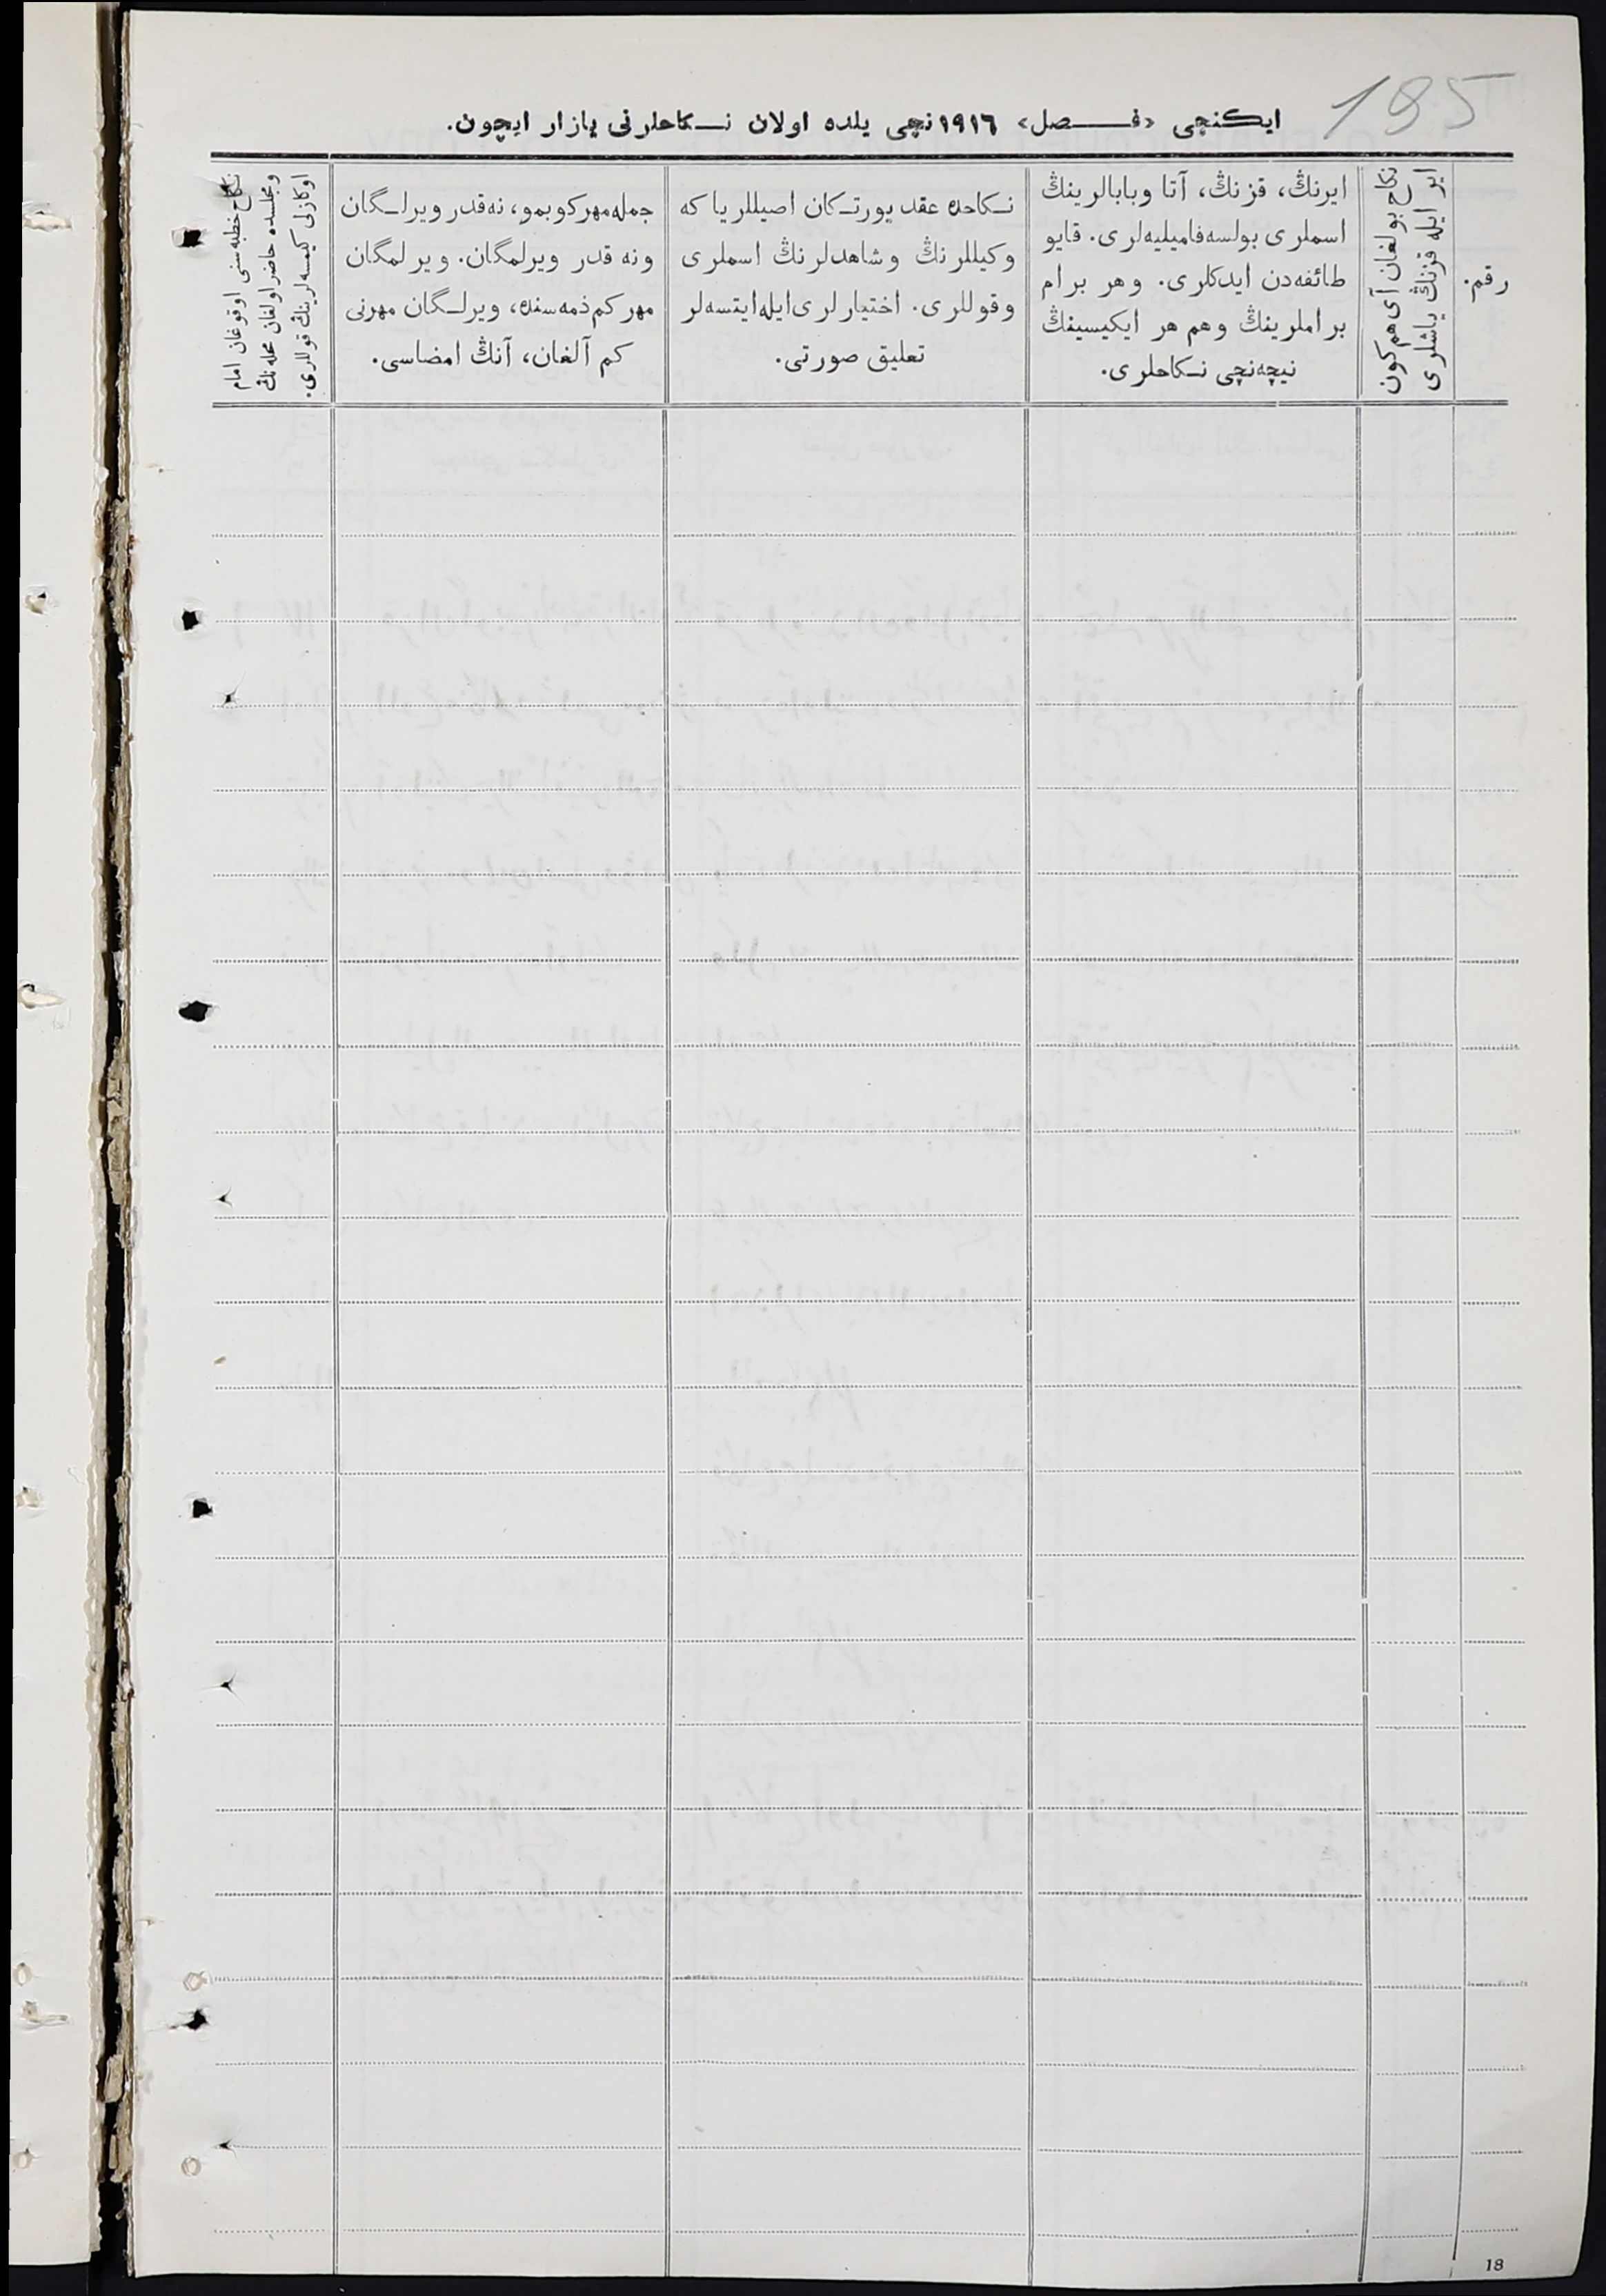 195
ایكنچی «فـــصل» ١٩١٦نچی یلده اولان نــكاحلرنی یازار ایچون.
رقم.
نكاح بولغان آی هم كون
ایر ایله قزنڭ یاشلری
ایرنڭ، قزنڭ، آتا وبابالرینڭ
اسملری بولسه‌فامیلیه‌لری. قایو
طائفه‌دن ایدكلری. وهر برام
براملرینڭ وهم هر ایكیسینڭ
نیچه‌نچی نــكاحلری.
نــكاحده عقد یورتــكان اصیللر یا كه
وكیللرنڭ وشاهدلرنڭ اسملری
وقوللری. اختیارلری‌ایله‌ایتسه‌لر
تعلیق صورتی.
جمله‌مهر كوبمو، نه‌قدر ویرلــگان
ونه قدر ویرلمگان. ویرلمگان
مهر كم ذمه‌سنده، ویرلــگان مهرنی
كم آلغان، آنڭ امضاسی.
نكاح خطبه‌سنی اوقوغان امام
ومجلسده حاضر اولغان محله‌نڭ
اوكازلی كیمسه‌لرینڭ قوللری.
18